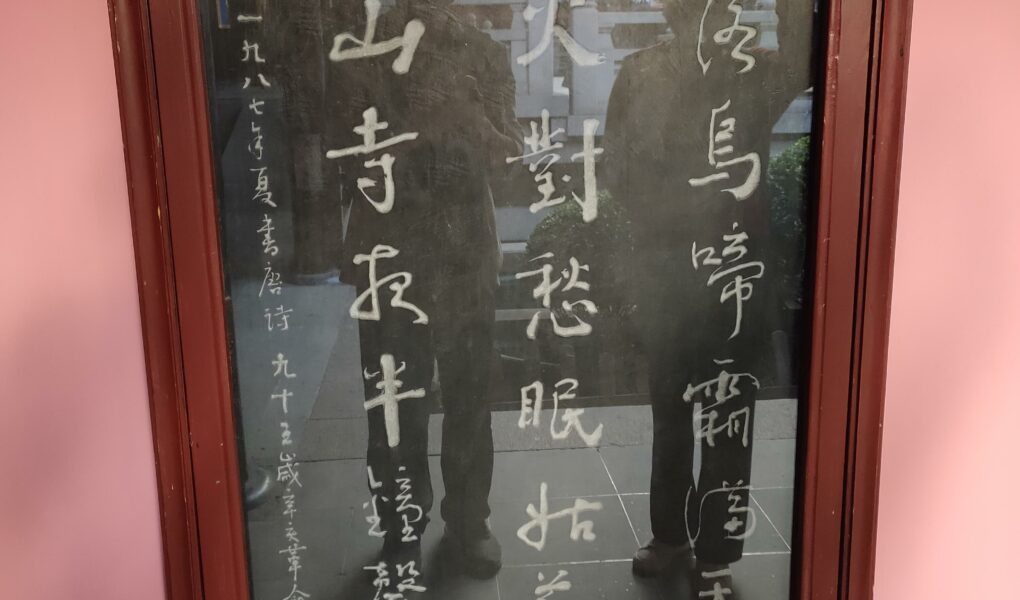 落烏啼霜滿天
火對愁眠姑蘇
山寺夜半鐘聲
一九八七年夏書唐诗 九十五歲辛亥革命